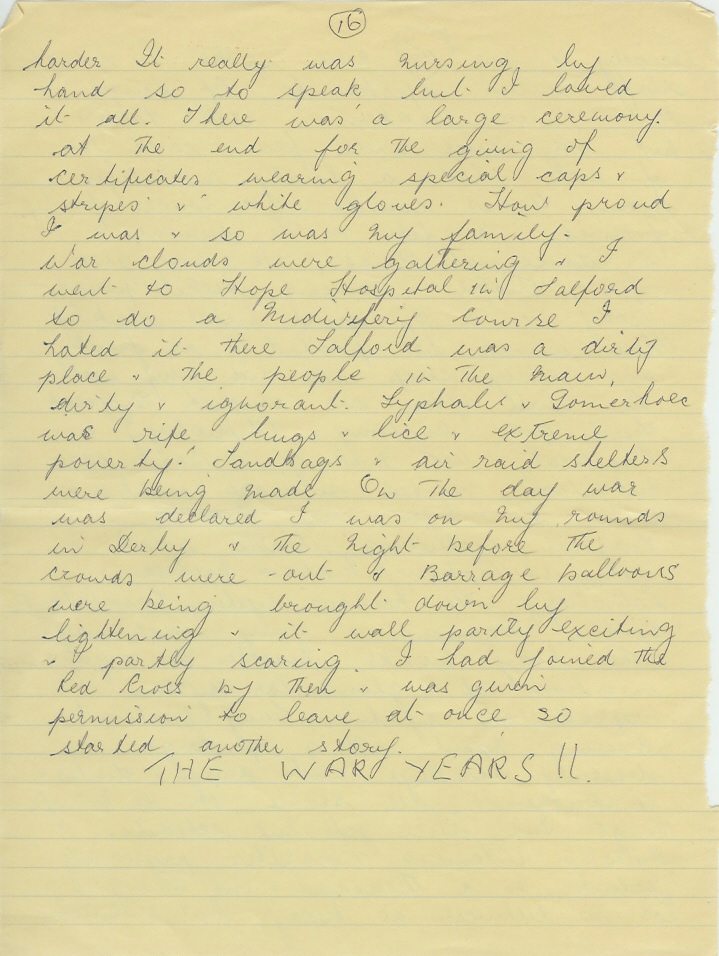 16
harder It really was nursing by
hand so to speak but I loved
it all. There was a large ceremony.
at the end for the giving of
certificates wearing special caps &
stripes & white gloves. How proud
I was & so was my family.
War clouds were gathering & I
went to Hope Hospital in Salford
to do a Midwifery course I
hated it there Salford was a dirty
place & the people in the main,
dirty & ignorant. Syphalis & Gonerhoec
was ripe bugs & lice & extreme
poverty! Sandbags & air raid shelters
were being made On the day war
was declared I was on my rounds
in Derby & the night before the
crowds were out & Barrage balloons
were being brought down by
lightening & it wall partly exciting
& partly scaring. I had joined the
Red Cross by then & was given
permission to leave at once so
started another story.
THE WAR YEARS!!.